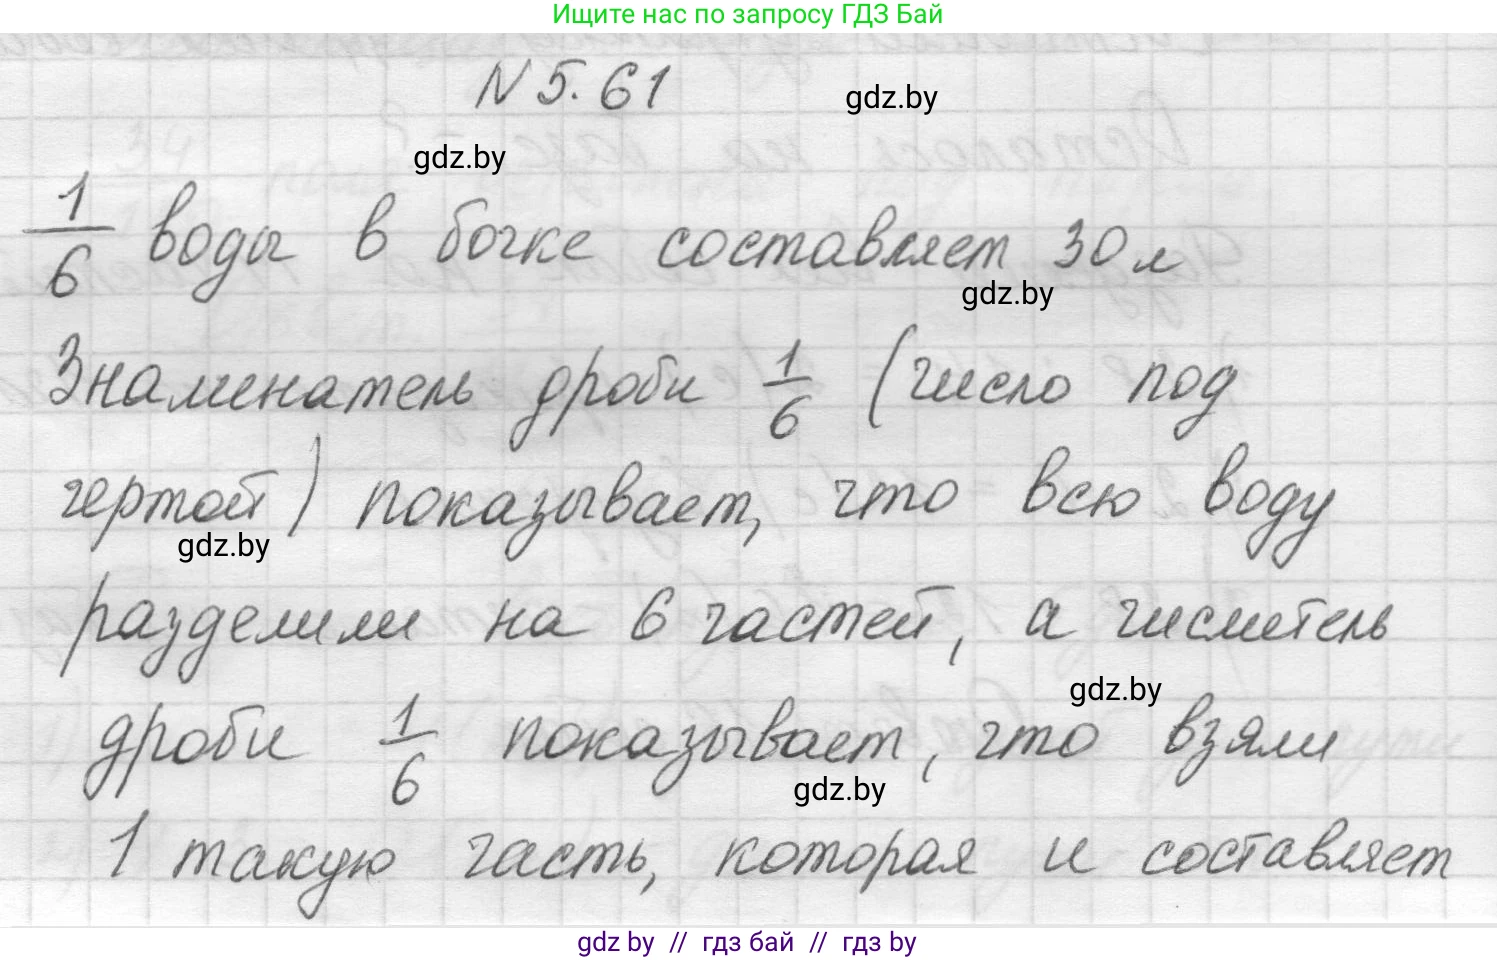 Ищите нас по запросу ГДЗ Бай
N 5.61
gdz.by
gdz.by
1/6 воды в бочке составляет 30 л
gdz.by
Знаменатель дроби 1/6 (число под
чертой) показывает, что всю воду
gdz.by
разделили на 6 частей, а числитель
gdz.by
дроби 1/6 показывает, что взяли
gdz.by
1 такую часть, которая и составляет
gdz by // гдз бай // гдз by